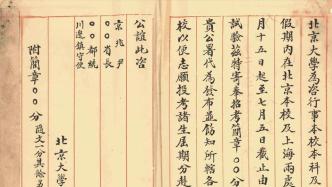 北京大學為咨行事本校本科及
假期內在北京本校及上海兩處
月十五日起至七月五日截止由
試驗茲特寄奉招考簡章〇〇分
貴公署代為發布並飭知所轄各
校以便志願投考諸生屆期分赴
公誼此咨
京兆尹
〇〇省長
〇〇都統
川邊鎮守使
附簡章〇〇分
北京大學